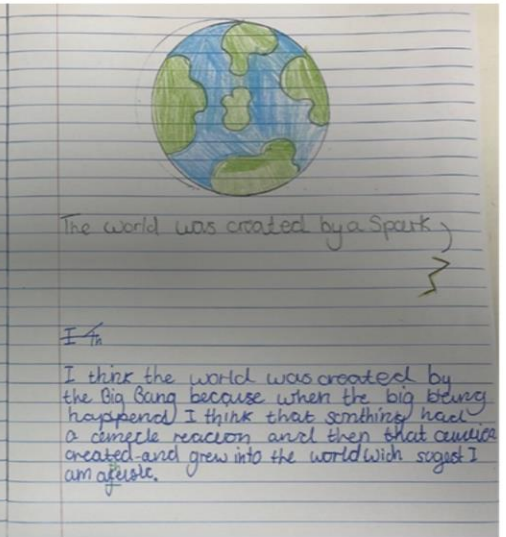 The world was created by a Spark
I Th
I think the world was created by
the Big Bang because when the big
happend I think that somthing had
a cemecle reacion and then that
created and grew into the world wich sugest I
am